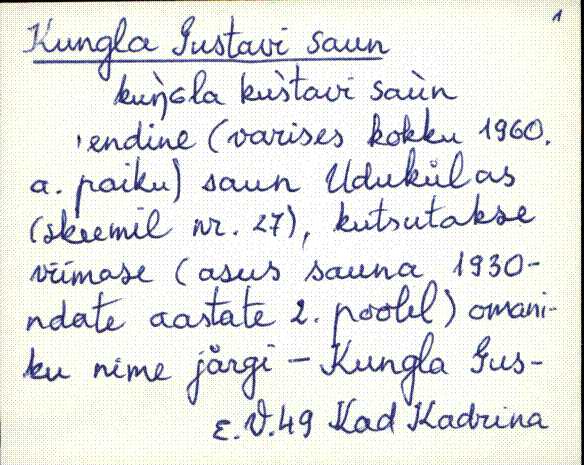 1
Kungla Gustavi saun
kuǹGla kùstavi saùn
'endine (varises kokku 1960.
a. paiku) saun Udukülas
(skeemil nr. 27), kutsutakse
viimase (asus sauna 1930-
ndate aastate 2. poolel) omani-
ku nime järgi – Kungla Gus-
E.V.49 Kad Kadrina